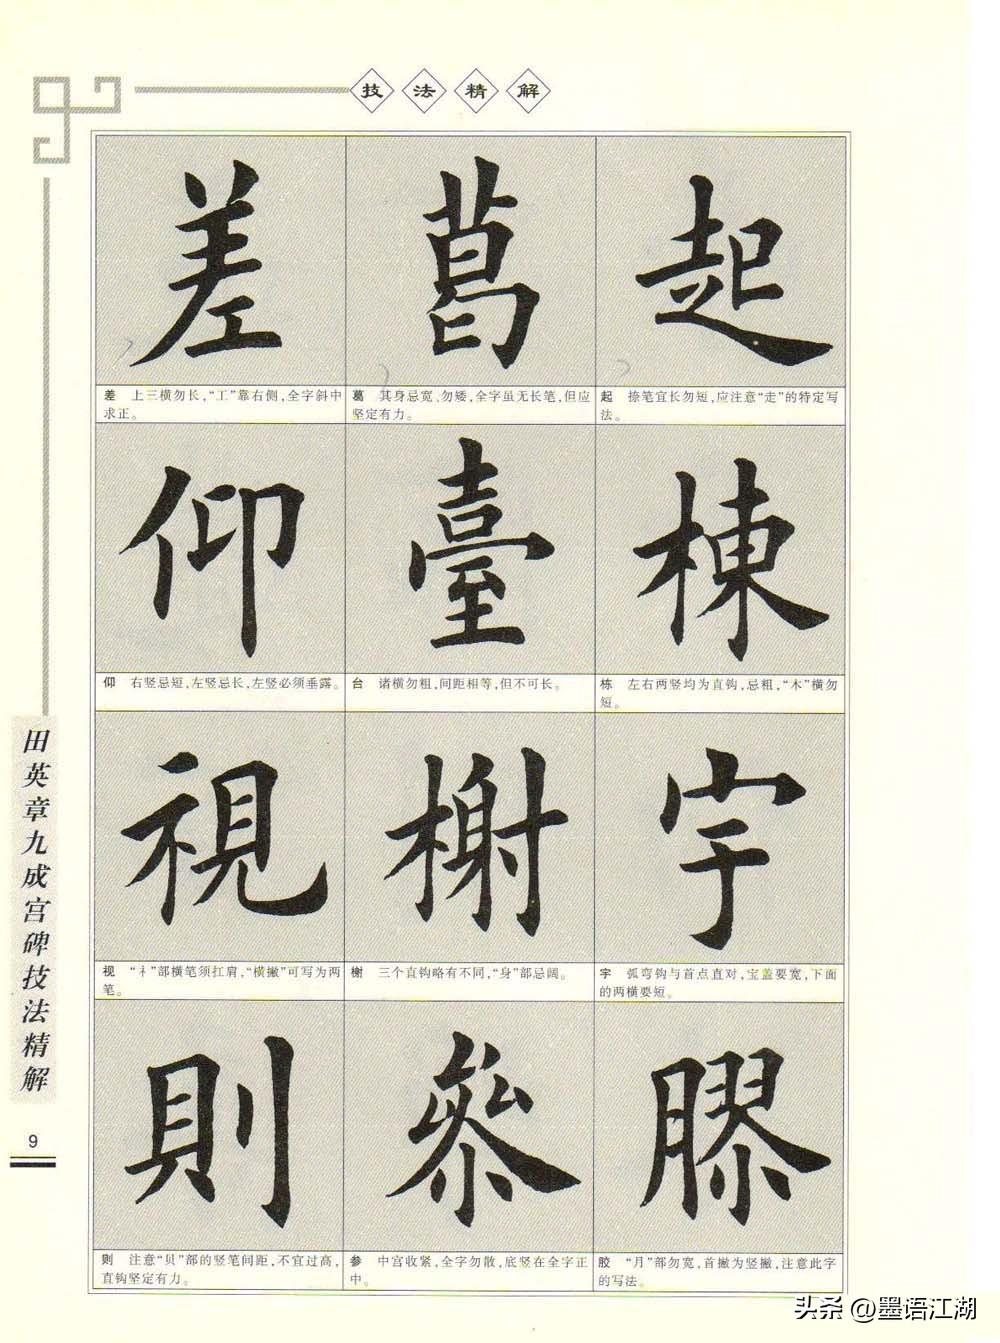 技法精解
差 葛 起
差 上三横勿长，“工”靠右侧，全字斜中
求正。
葛 其身忌宽、勿矮，全字虽无长笔，但应
坚定有力。
起 捺笔宜长勿短，应注意“走”的特定写
法。
仰 臺 棟
仰 右竖忌短，左竖忌长，左竖必须垂露。
台 诸横勿粗，间距相等，但不可长。
栋 左右两竖均为直钩，忌粗，“木”横勿
短。
視 榭 宇
视 “礻”部横笔须扛肩，“横撇”可写为两
笔。
榭 三个直钩略有不同，“身”部忌阔。
宇 弧弯钩与首点直对，宝盖要宽，下面
的两横要短。
則 參 膠
则 注意“贝”部的竖笔间距，不宜过高，
直钩坚定有力。
参 中宫收紧，全字勿散，底竖在全字正
中。
胶 “月”部勿宽，首撇为竖撇，注意此字
的写法。
田英章九成宫碑技法精解
9
头条 @墨语江湖